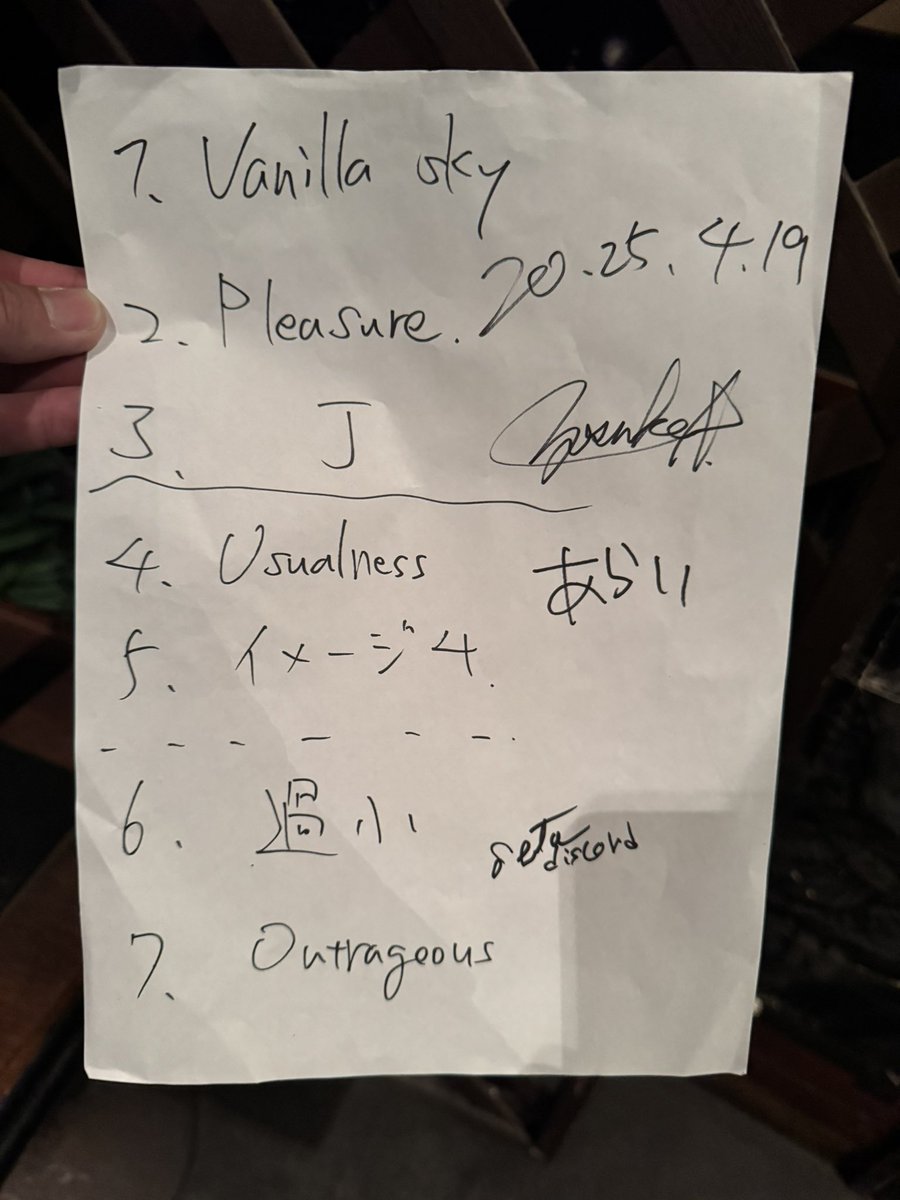 1. Vanilla sky
20.25.4.19
2. Pleasure.
3. J
4. Usualness
あらい
5. イメージ4.
6. 過小
discord
7. Outrageous